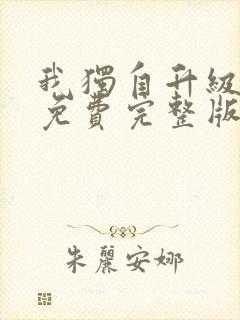 我獨自升級
免費完整版
朱麗安娜